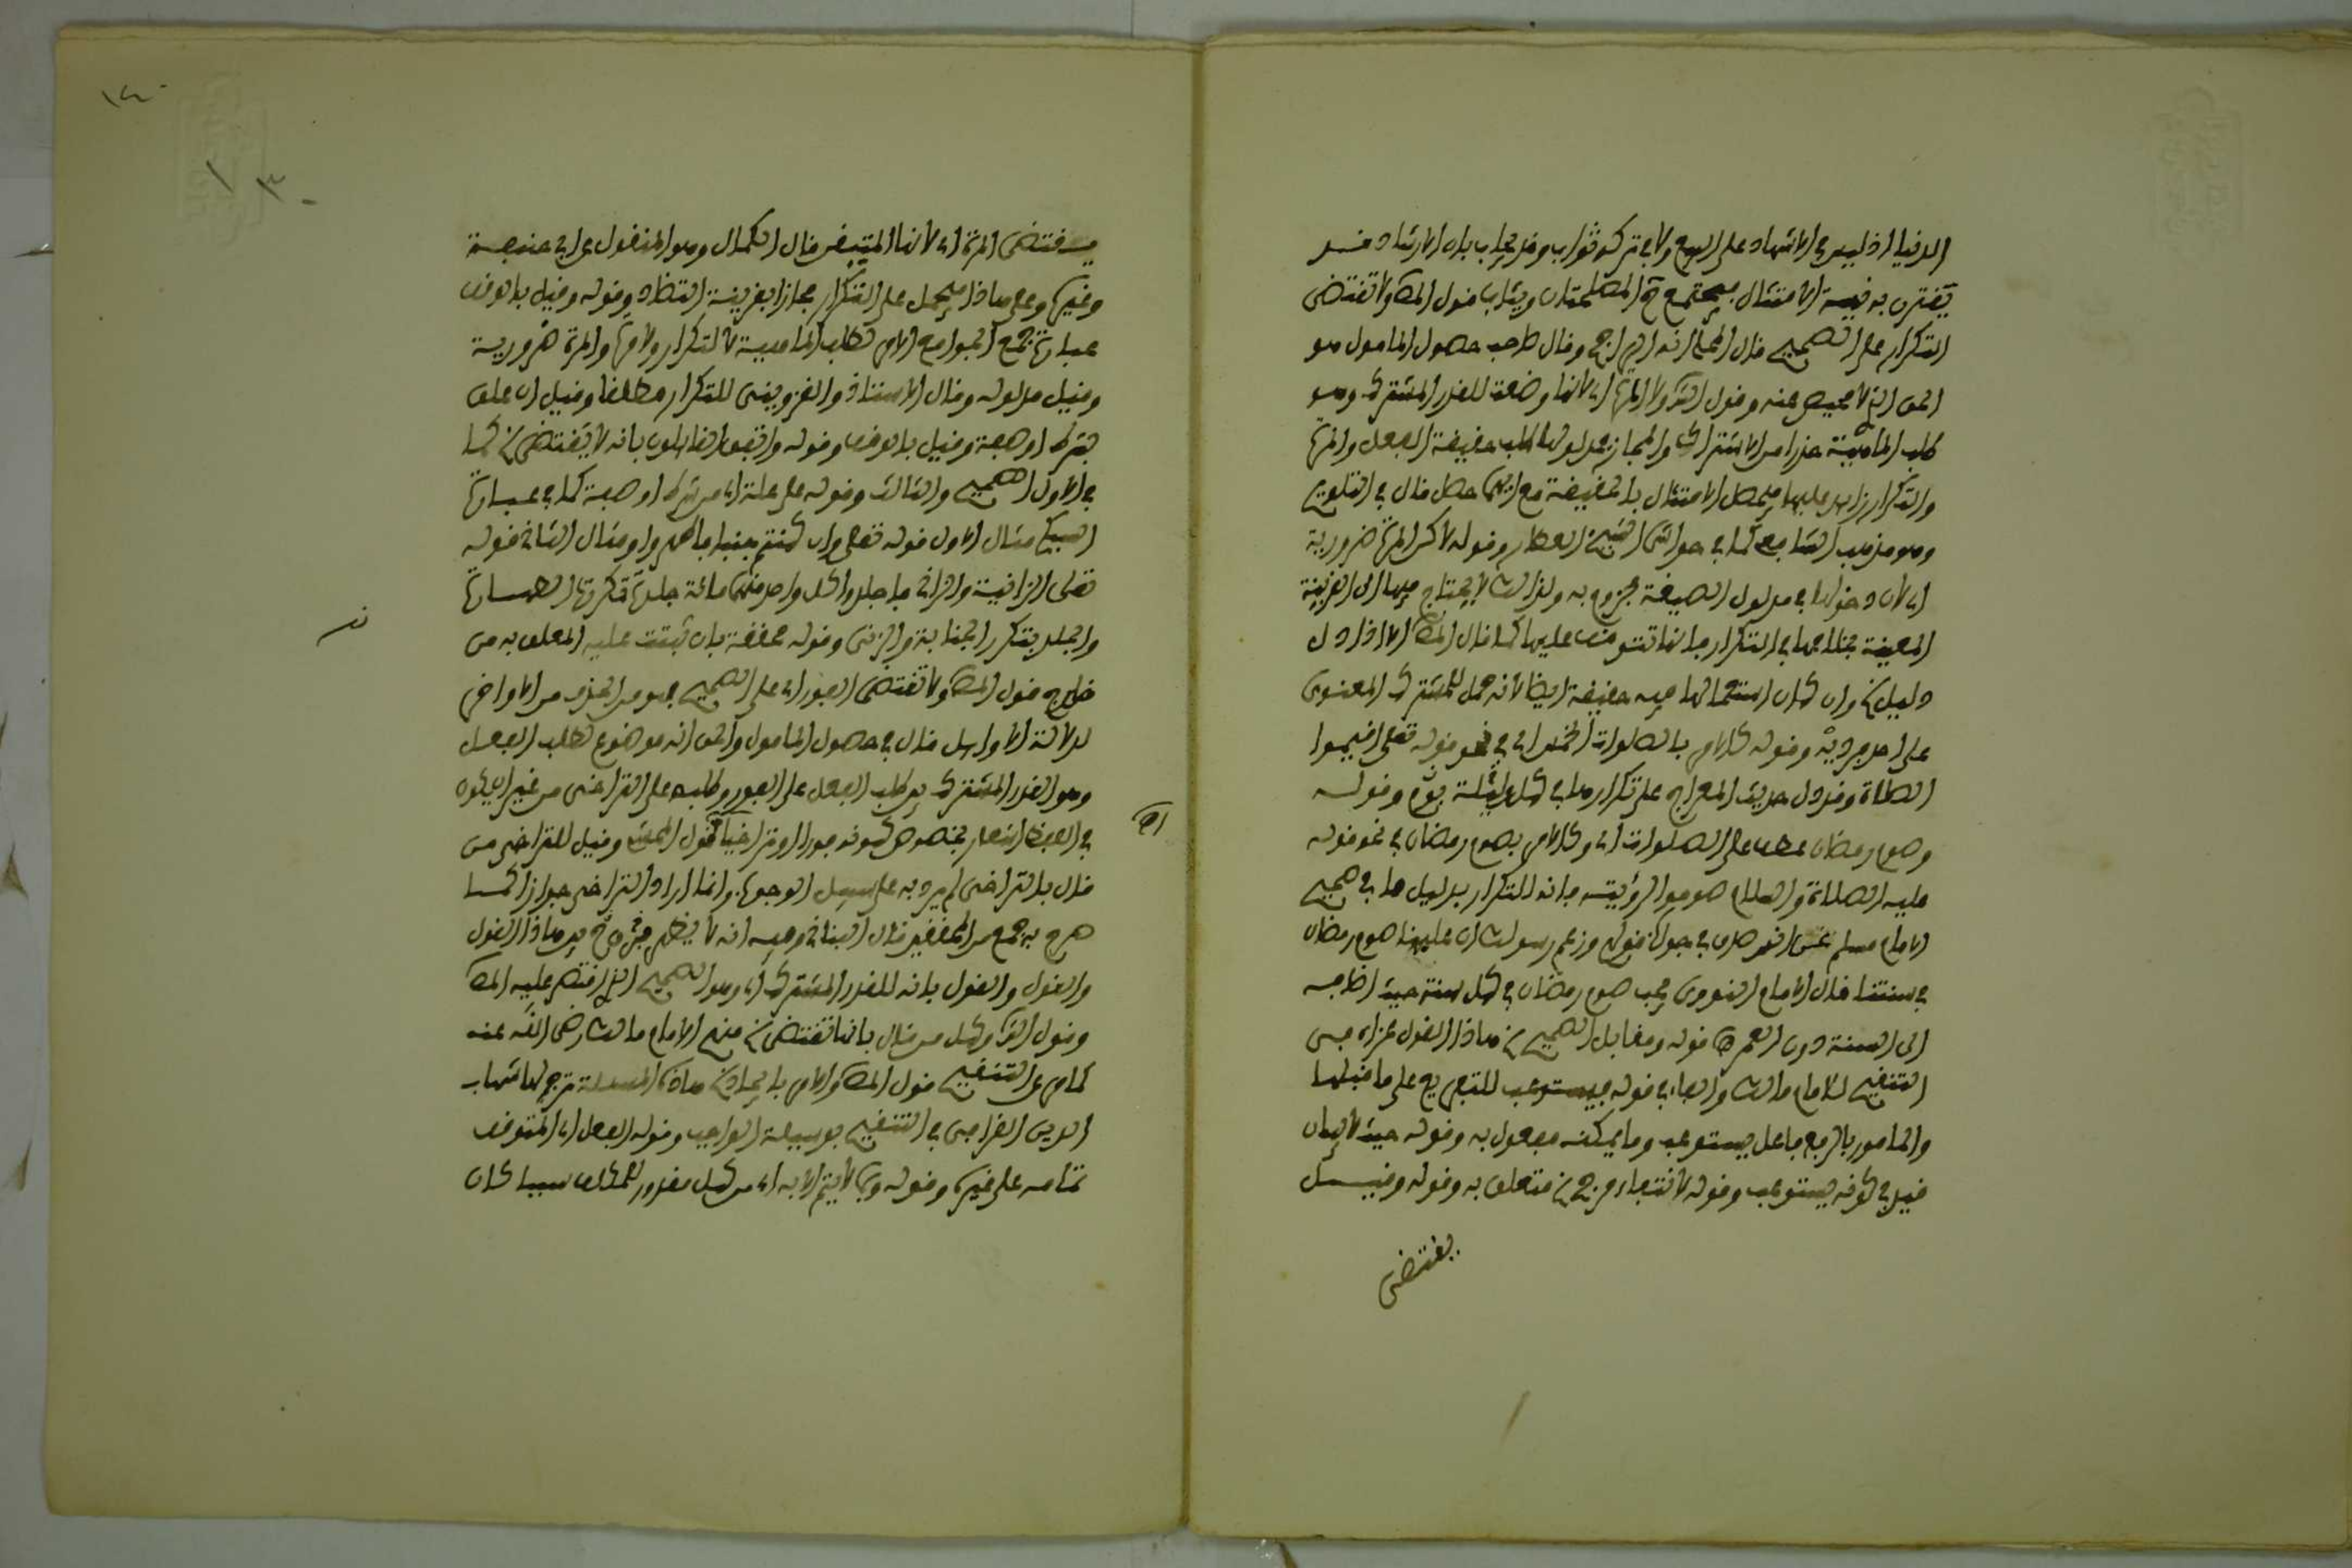 الدنيا اذ ليس في الاشهاد على البيع ولا في تركه ثواب وقد يجاب بان الارشاد قد
يقترن به نية الامتثال فيجتمع فيه المصلحتان ويثاب قول المص ولا تقتضي
التكرار على الصحيح قال المحلي انه الراجح وقال صاحب حصول المامول هو
الحق الذي لا محيص عنه وقول الش ولا المرة اي لانها وضعت للقدر المشترك وهو
طلب الماهية حذرا من الاشتراك والمجاز فمدلولها طلب حقيقة الفعل والمرة
والتكرار زايد عليها فيحصل الامتثال بالحقيقة مع ايهما حصل قال في التلويح
وهو مذهب الشافعي كما في حواشي الشيخ العطار وقوله لاكن المرة ضرورية
اي لان دخولها في مدلول الصيغة مجزوم به ولذالك لا يحتاج فيها الى القرينة
المعينة بخلافها في التكرار فانها تتوقف عليها كما قال المص الا اذا دل
دليل وان كان استعمالها فيه حقيقة ايضا لانه حمل للمشترك المعنوي
على احد فرديه وقوله كالامر بالصلوات الخمس اي في نحو قوله تعلى اقيموا
الصلاة وقد دل حديث المعراج على تكرارها في كل يوم وليلة وقوله
وصوم رمضان عطف على الصلوات اي وكالامر بصوم رمضان في نحو قوله
عليه الصلاة والسلام صوموا لرؤيته فانه للتكرار بدليل ما في صحيح
الامام مسلم عنه صدق في جواب قوله وزعم رسولك ان علينا صوم رمضان
في سنتنا قال الامام النووي يجب صوم رمضان في كل سنة حيث اضافه
الى السنة دون العمر اه قوله ومقابل الصحيح هاذا القول عزاه في
التنقيح للامام مالك والفاء في قوله فيستوعب للتفريع على ما قبلها
والمامور بالرفع فاعل يستوعب وما يمكنه مفعول به وقوله حيث لا بيان
قيد في كونه يستوعب وقوله لانتفاء مرجح متعلق به وقوله وقيل
يقتضي
يقتضي المرة اي لانها المتيقن قال الكمال وهو المنقول عن ابي حنيفة
وغيره وعلى هاذا فيحمل على التكرار مجازا بقرينة التضاد وقوله وقيل بالوقف
عبارة جمع الجوامع الامر لطلب الماهية لا لتكرار ولا مرة والمرة ضرورية
وقيل مدلوله وقال الاستاذ والقزويني للتكرار مطلقا وقيل ان علق
بشرط او صفة وقيل بالوقف وقوله واتفق القايلون بانه لا يقتضي كما
في الاول الصحيح والثالث وقوله على علة اي من شرط او صفة كما في عبارة
السبكي مثال الاول قوله تعلى وان كنتم جنبا فاطهروا ومثال الثاني قوله
تعلى الزانية والزاني فاجلدوا كل واحد منهما مائة جلدة تتكرر الطهارة
والجلد بتكرر الجنابة والزنى وقوله محققة بان ثبتت علية المعلق به من
خارج قول المص ولا تقتضي الفور اي على الصحيح فهو من الحذف من الاواخر
لدلالة الاوايل قال في حصول المامول والحق انه موضوع لطلب الفعل
وهو القدر المشترك بين طلب الفعل على الفور وطلبه على التراخي من غير ان يكون
في اللفظ اشعار بخصوص كونه فورا او متراخيا اه قول المص وقيل للتراخي من
قال بالتراخي لم يرد به على سبيل الوجوب وانما اراد التراخي جوازا كما
صرح به جمع من المحققين قال البناني وفيه انه لا يظهر فرق بين هاذا القول
والقول بانه للقدر المشترك اي وهو الصحيح الذي اقتصر عليه المص
وقول الش وكل من قال بانها تقتضي منهم الامام مالك رضي الله عنه
كما في التنقيح قول المص والامر بايجاد هاذه المسئلة ترجم لها شهاب
الدين القرافي في التنقيح بوسيلة الواجب وقوله الفعل اي المتوقف
تمامه على غيره وقوله وبما لا يتم الا به اي من كل مقدور للمكلف سببا كان